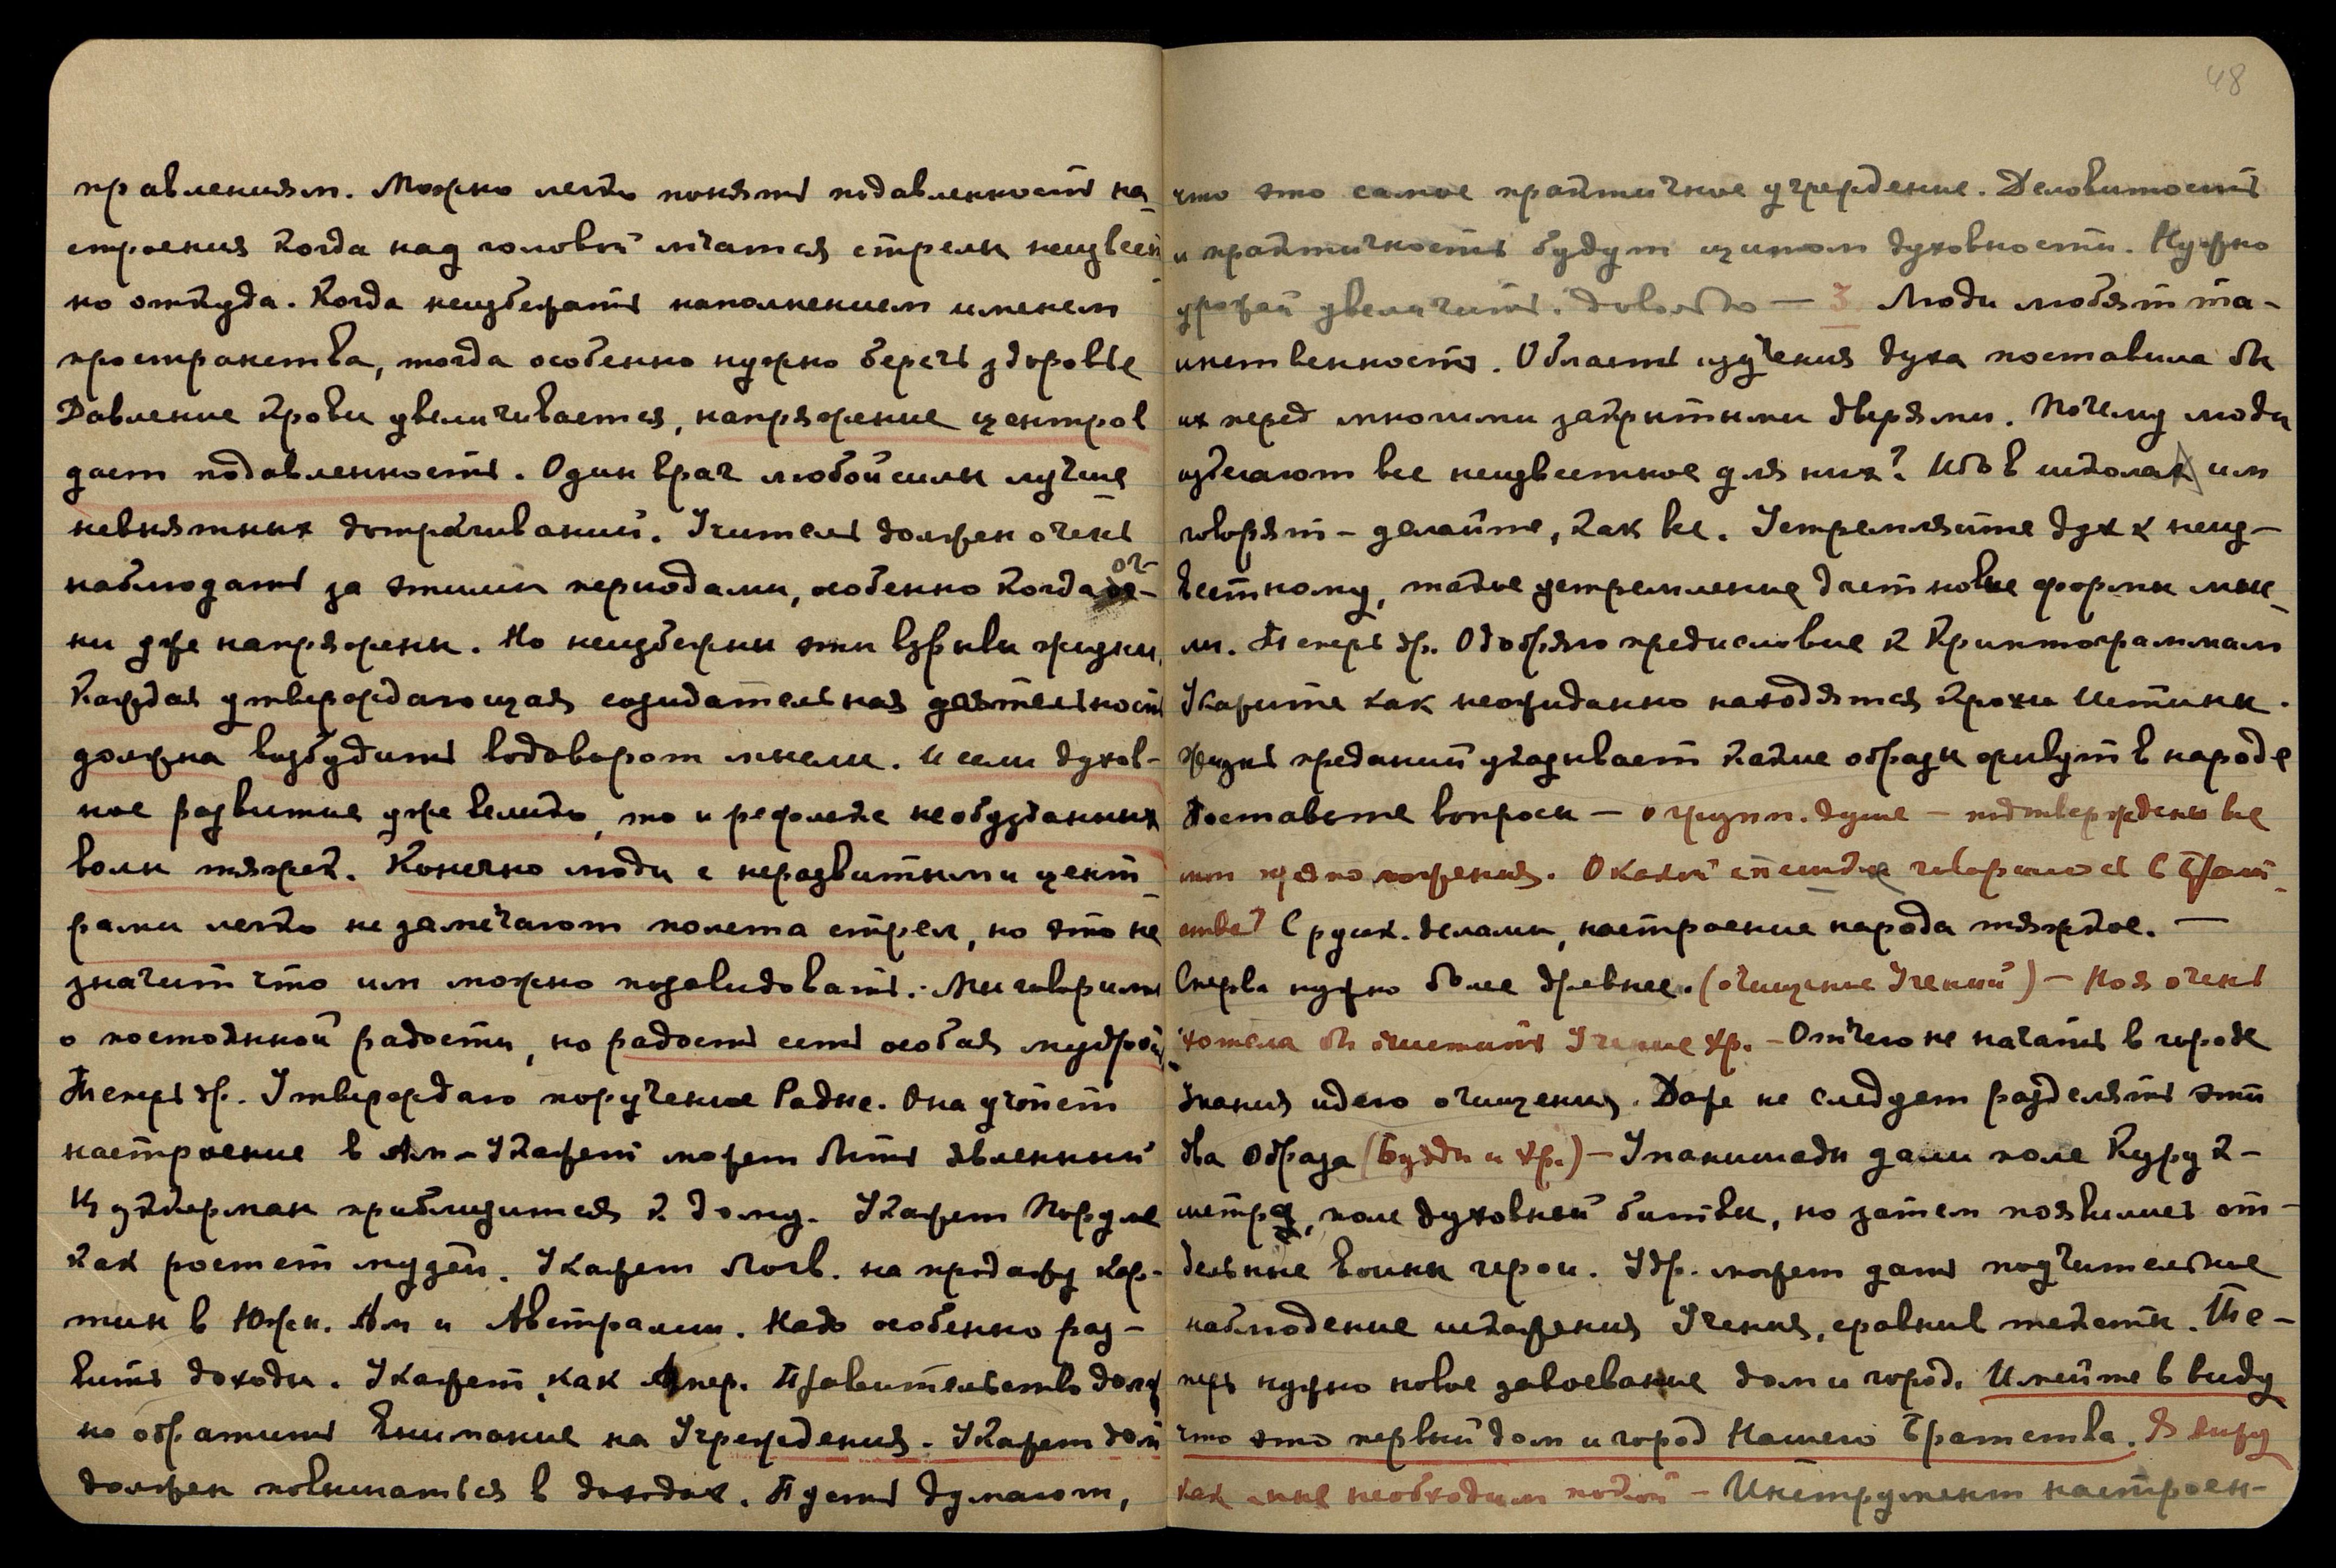 правлениям. Можно легко понять подавленность на-
строения когда над головой мчатся стрелы неизвест
но откуда. Когда неизбежать наполнением именем
пространства, тогда особенно нужно беречь здоровье
Давление крови увеличивается, напряжение центров
дает подавленность. Один врач любой силы лучше
невнятных дотрагиваний. Учитель должен очень
наблюдать за этими периодами, особенно когда оч-
ни уже напряжены. Но неизбежны эти взрывы жизни,
Каждая утверждающая созидательная деятельность
должна возбудить водоворот мысли. И если духов-
ное развитие уже велико, то и рефолекс необузданных
волн тяжек. Конечно люди с неразвитыми цент-
рами легко не замечают полета стрел, но это не
значит что им можно позавидовать. Мы говорим
о постоянной радости, но радость есть особая мудрость
Теперь др. Утверждаю поручение Радне. Она учтет
настроение в Ам - Укажет может быть явленный
Цуккерман приблизится к дому. Укажет Поруме
как ростет музей. Укажет Логв. на продажу кар-
тин в Южн. Ам и Австралии. Надо особенно раз-
вить доходы. Укажет, как Амер. Правительство долж
но обратить внимание на Учреждения. Укажет дом
должен повышаться в доходах. Пусть думают,
48
что это самое практичное учреждение. Деловитость
и практичность будут щитом духовности. Нужно
урожай увеличить. Довольно — 3 Люди любят та-
инственность. Область изучения духа поставила бы
их перед многими закрытыми дверями. Почему люди
избегают все неизвестное для них? Ибо в школах им
говорят - делайте, как все. Устремляйте дух к неиз-
вестному, такое устремление дает новые формы мыс-
ли. Теперь др. Одобряю предисловие к Криптограммам
Укажите как неожиданно находятся крохи Истины.
Жизнь преданий указывает какие образы живут в народе
Поставьте вопросы — о групп. душе - подтверждены все
мои предположения. О какой спешке говорилось в Брат-
стве? С русск. делами, настроение народа тяжкое. —
Сперва нужно более древнее. (очищение Учений) - Но я очень
хотела бы очистить Учение Хр. - Отчего не начать в городе
знания идею очищения. Даже не следует разделять эти
два Образа (Будды и Хр.) - Упанишады дали поле Куру к-
шетра, поле духовной битвы, но затем появились от-
дельные воины герои. Удр. может дать поучительное
наблюдение искажения Учения, сравнив тексты. Те-
перь нужно новое завоевание дом и город. Имейте в виду
что это первый дом и город Нашего Братства. Я вижу
как мне необходим покой - Инструмент настроен-